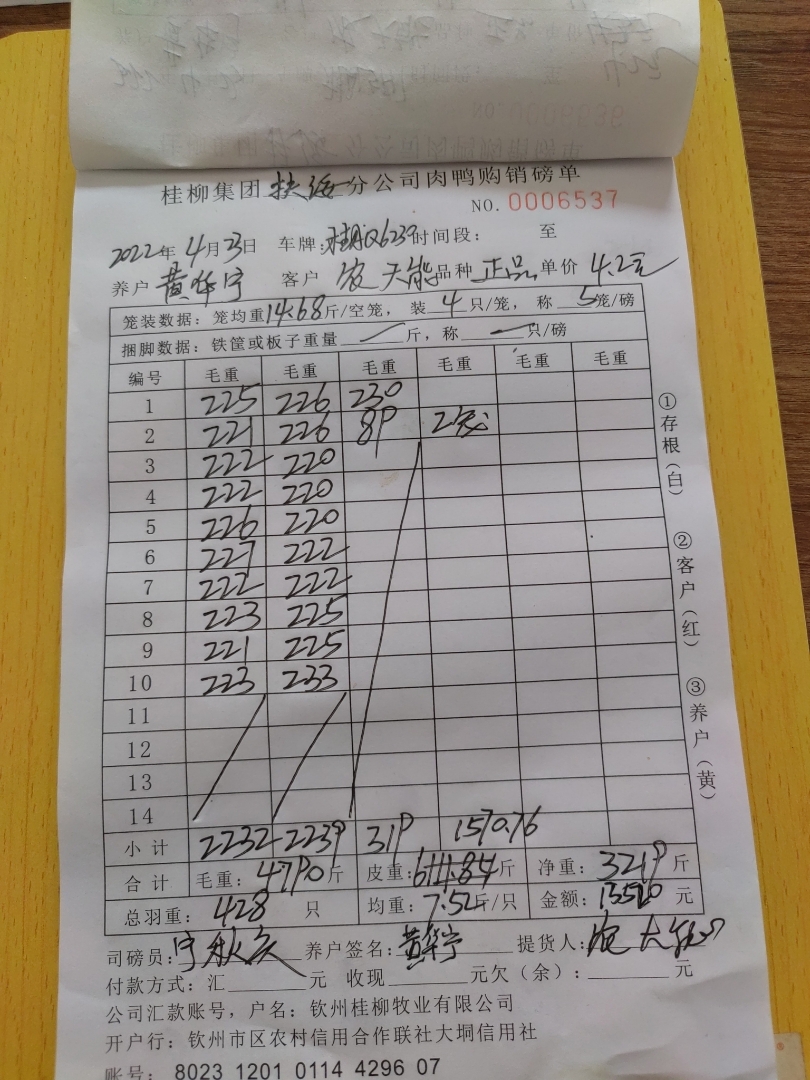 桂柳集团 扶海 分公司肉鸭购销磅单
NO. 0006537
2022年 4月23日 车牌:桂 Q6239 时间段: 至
养户 黄华宇 客户 农天能 品种 正品 单价 4.2元
笼装数据:笼均重14.68斤/空笼, 装 4 只/笼, 称 5笼/磅
捆脚数据:铁筐或板子重量 — 斤,称 — 只/磅
编号 毛重 毛重 毛重 毛重 毛重 毛重
1 225 226 230
2 221 226 89 2笼
3 222 220
4 222 220
5 226 220
6 227 222
7 222 222
8 223 225
9 221 225
10 223 233
11
12
13
14
小计 2232 2239 319 1570.76
合计 毛重: 4790斤 皮重: 斤 净重: 3219斤
总羽重: 428 只 均重: 7.52斤/只 金额: 13520 元
司磅员: 养户签名: 黄华宇 提货人: 农天能
付款方式:汇 元 收现 元欠(余): 元
公司汇款账号,户名:钦州桂柳牧业有限公司
开户行:钦州市区农村信用合作联社大垌信用社
账号: 8023 1201 0114 4296 07
①存根(白)
②客户(红)
③养户(黄)